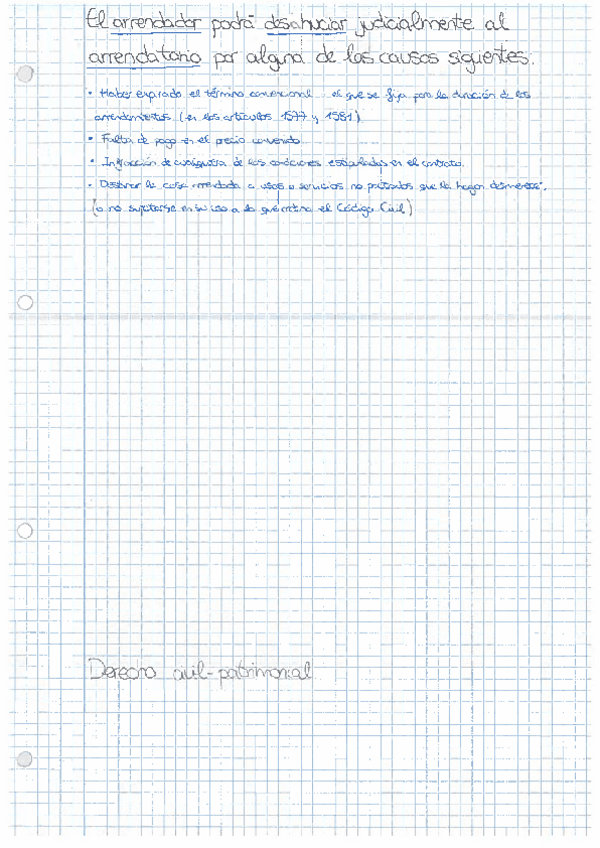 El arrendador podrá desahuciar judicialmente al
arrendatario por alguna de las causas siguientes:
• Haber expirado el término convencional o el que se fija para la duración de los
arrendamientos (en los artículos 1577 y 1581)
• Falta de pago en el precio convenido
• Infracción de cualquiera de las condiciones estipuladas en el contrato.
• Destinar la cosa arrendada a usos o servicios no pactados que la hagan desmerecer.
(o no sujetarse en su uso a lo que ordena el Código Civil)
Derecho civil-patrimonial